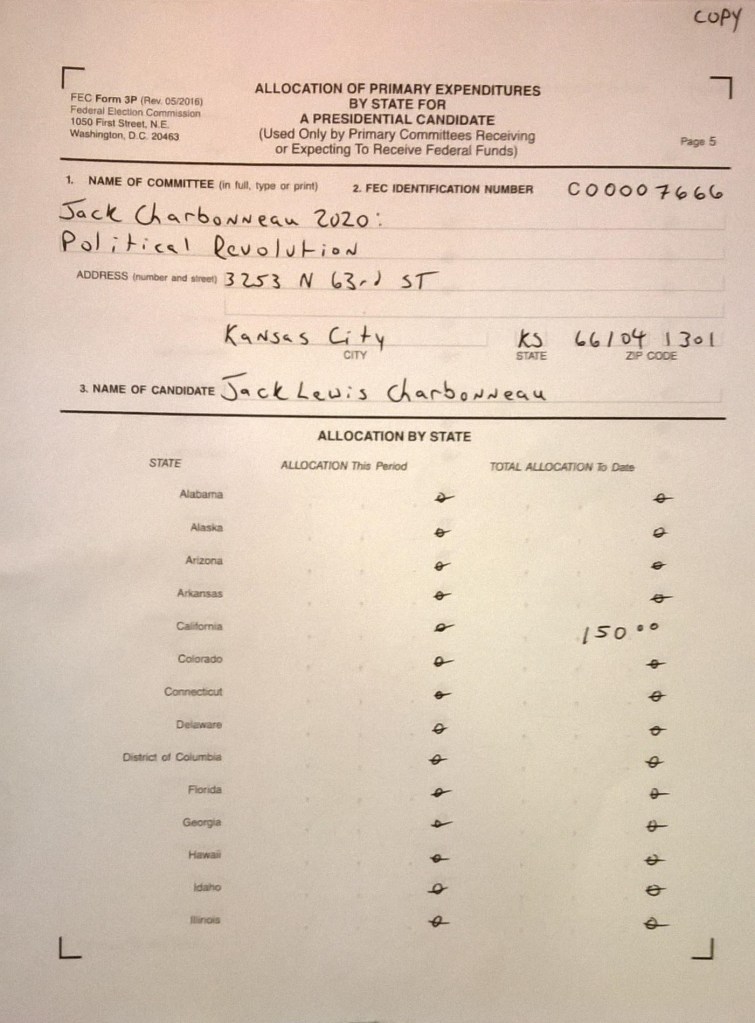 COPY
FEC Form 3P (Rev. 05/2016)
Federal Election Commission
1050 First Street, N.E.
Washington, D.C. 20463
ALLOCATION OF PRIMARY EXPENDITURES
BY STATE FOR
A PRESIDENTIAL CANDIDATE
(Used Only by Primary Committees Receiving
or Expecting To Receive Federal Funds)
Page 5
1. NAME OF COMMITTEE (in full, type or print) 2. FEC IDENTIFICATION NUMBER C00007666
Jack Charbonneau 2020:
Political Revolution
ADDRESS (number and street) 3253 N 63rd ST
Kansas City KS 66104 1301
CITY STATE ZIP CODE
3. NAME OF CANDIDATE Jack Lewis Charbonneau
ALLOCATION BY STATE
STATE ALLOCATION This Period TOTAL ALLOCATION To Date
Alabama 0 0
Alaska 0 0
Arizona 0 0
Arkansas 0 0
California 0 150.00
Colorado 0 0
Connecticut 0 0
Delaware 0 0
District of Columbia 0 0
Florida 0 0
Georgia 0 0
Hawaii 0 0
Idaho 0 0
Illinois 0 0